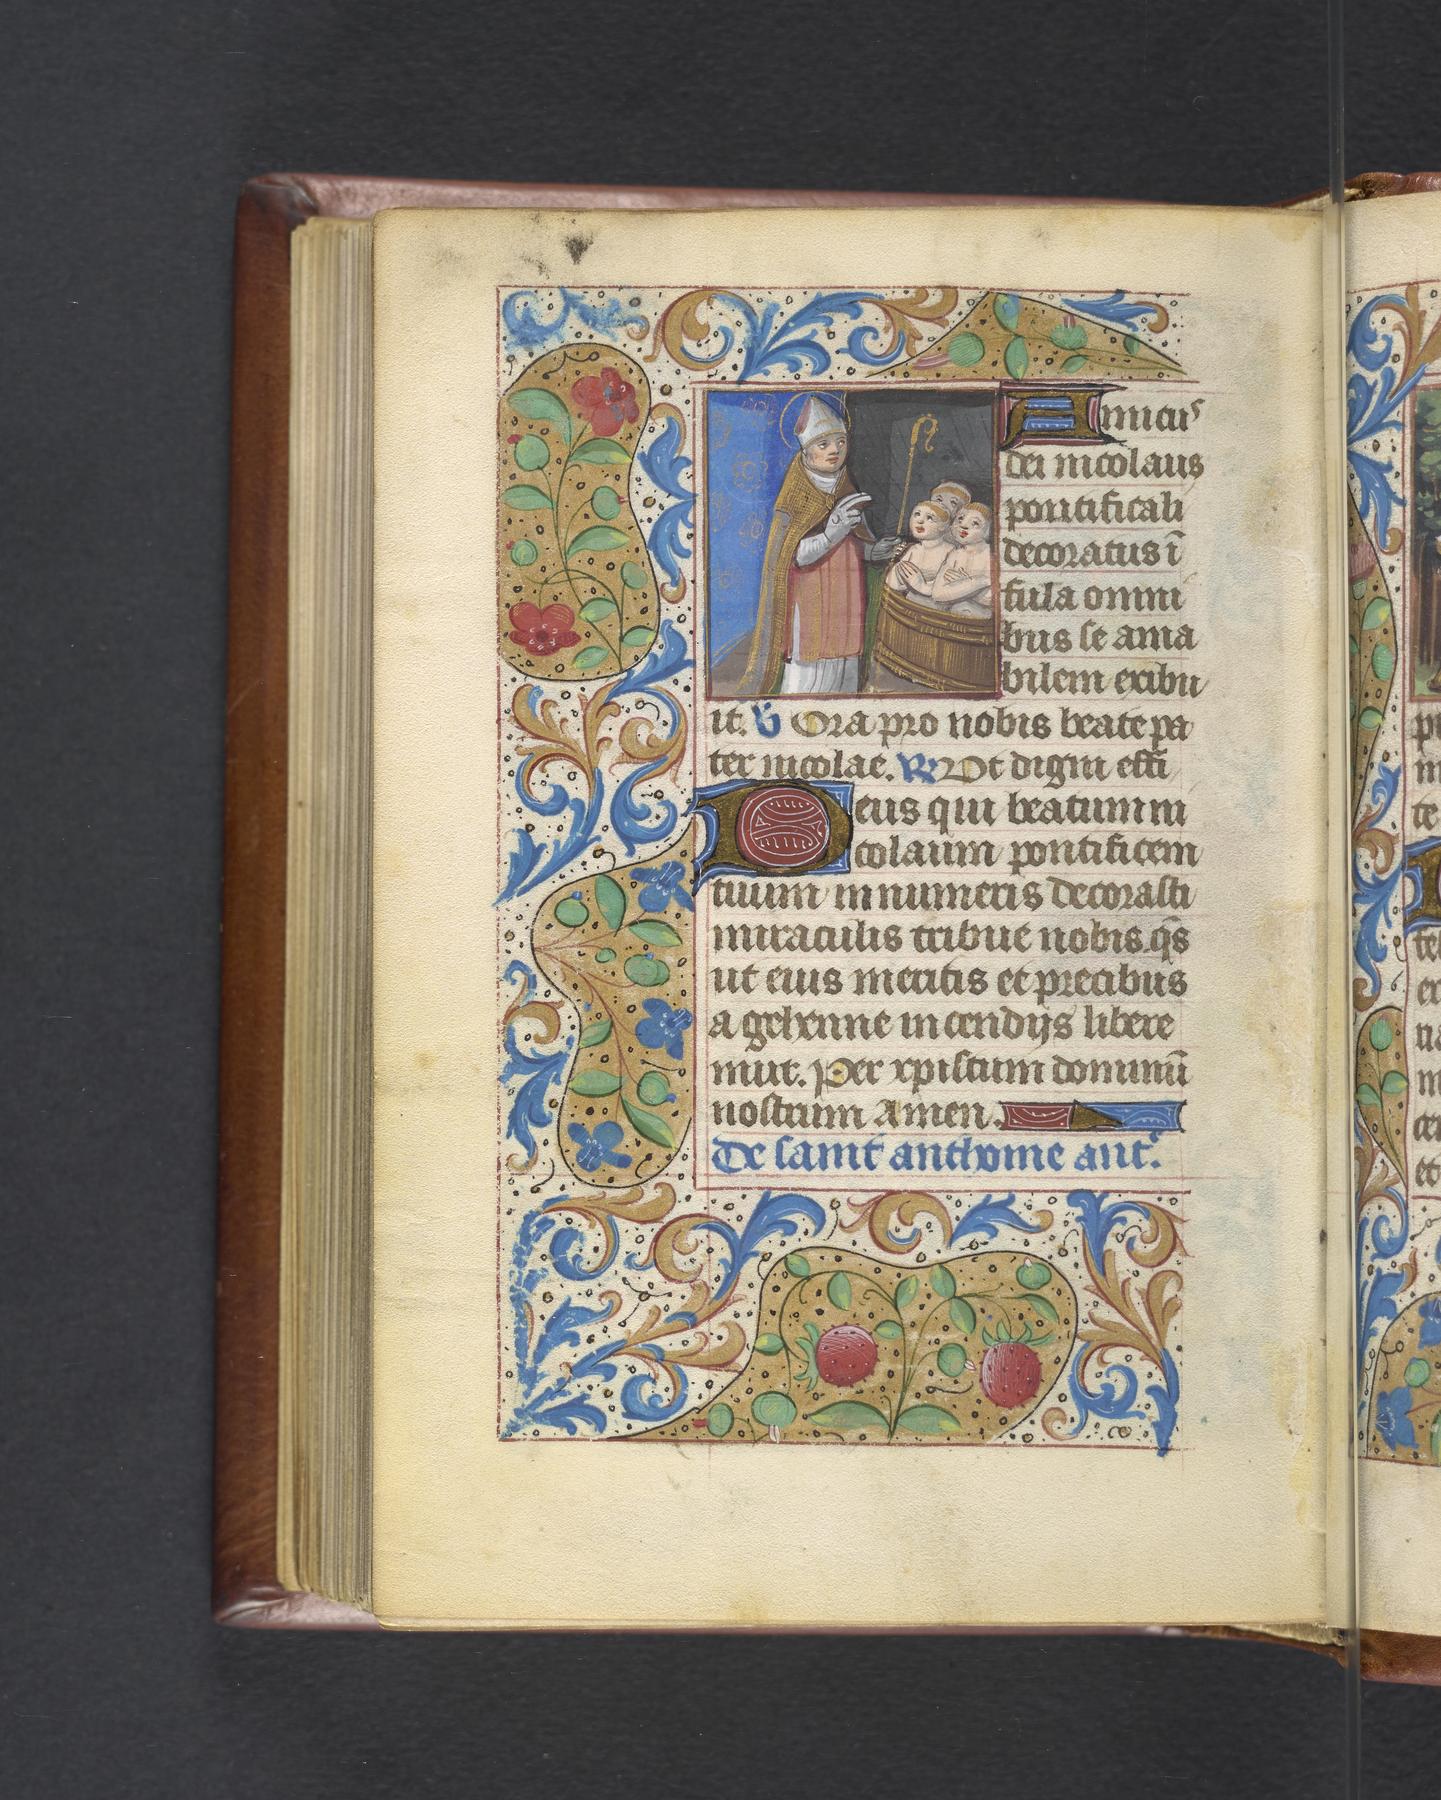 Amicus
dei nicolaus
pontificali
decoratus ī
fula omni
bus se ama
bilem exibu
it. ℣ Ora pro nobis beate pa
ter nicolae. ℟ Vt digni effi
Deus qui beatum ni
colaum pontificem
tuum innumeris decorasti
miraculis tribue nobis qs̄
ut eius meritis et precibus
a gehenne incendijs libere
mur. Per xpistum dominū
nostrum Amen.
De sainct anthoine ant.